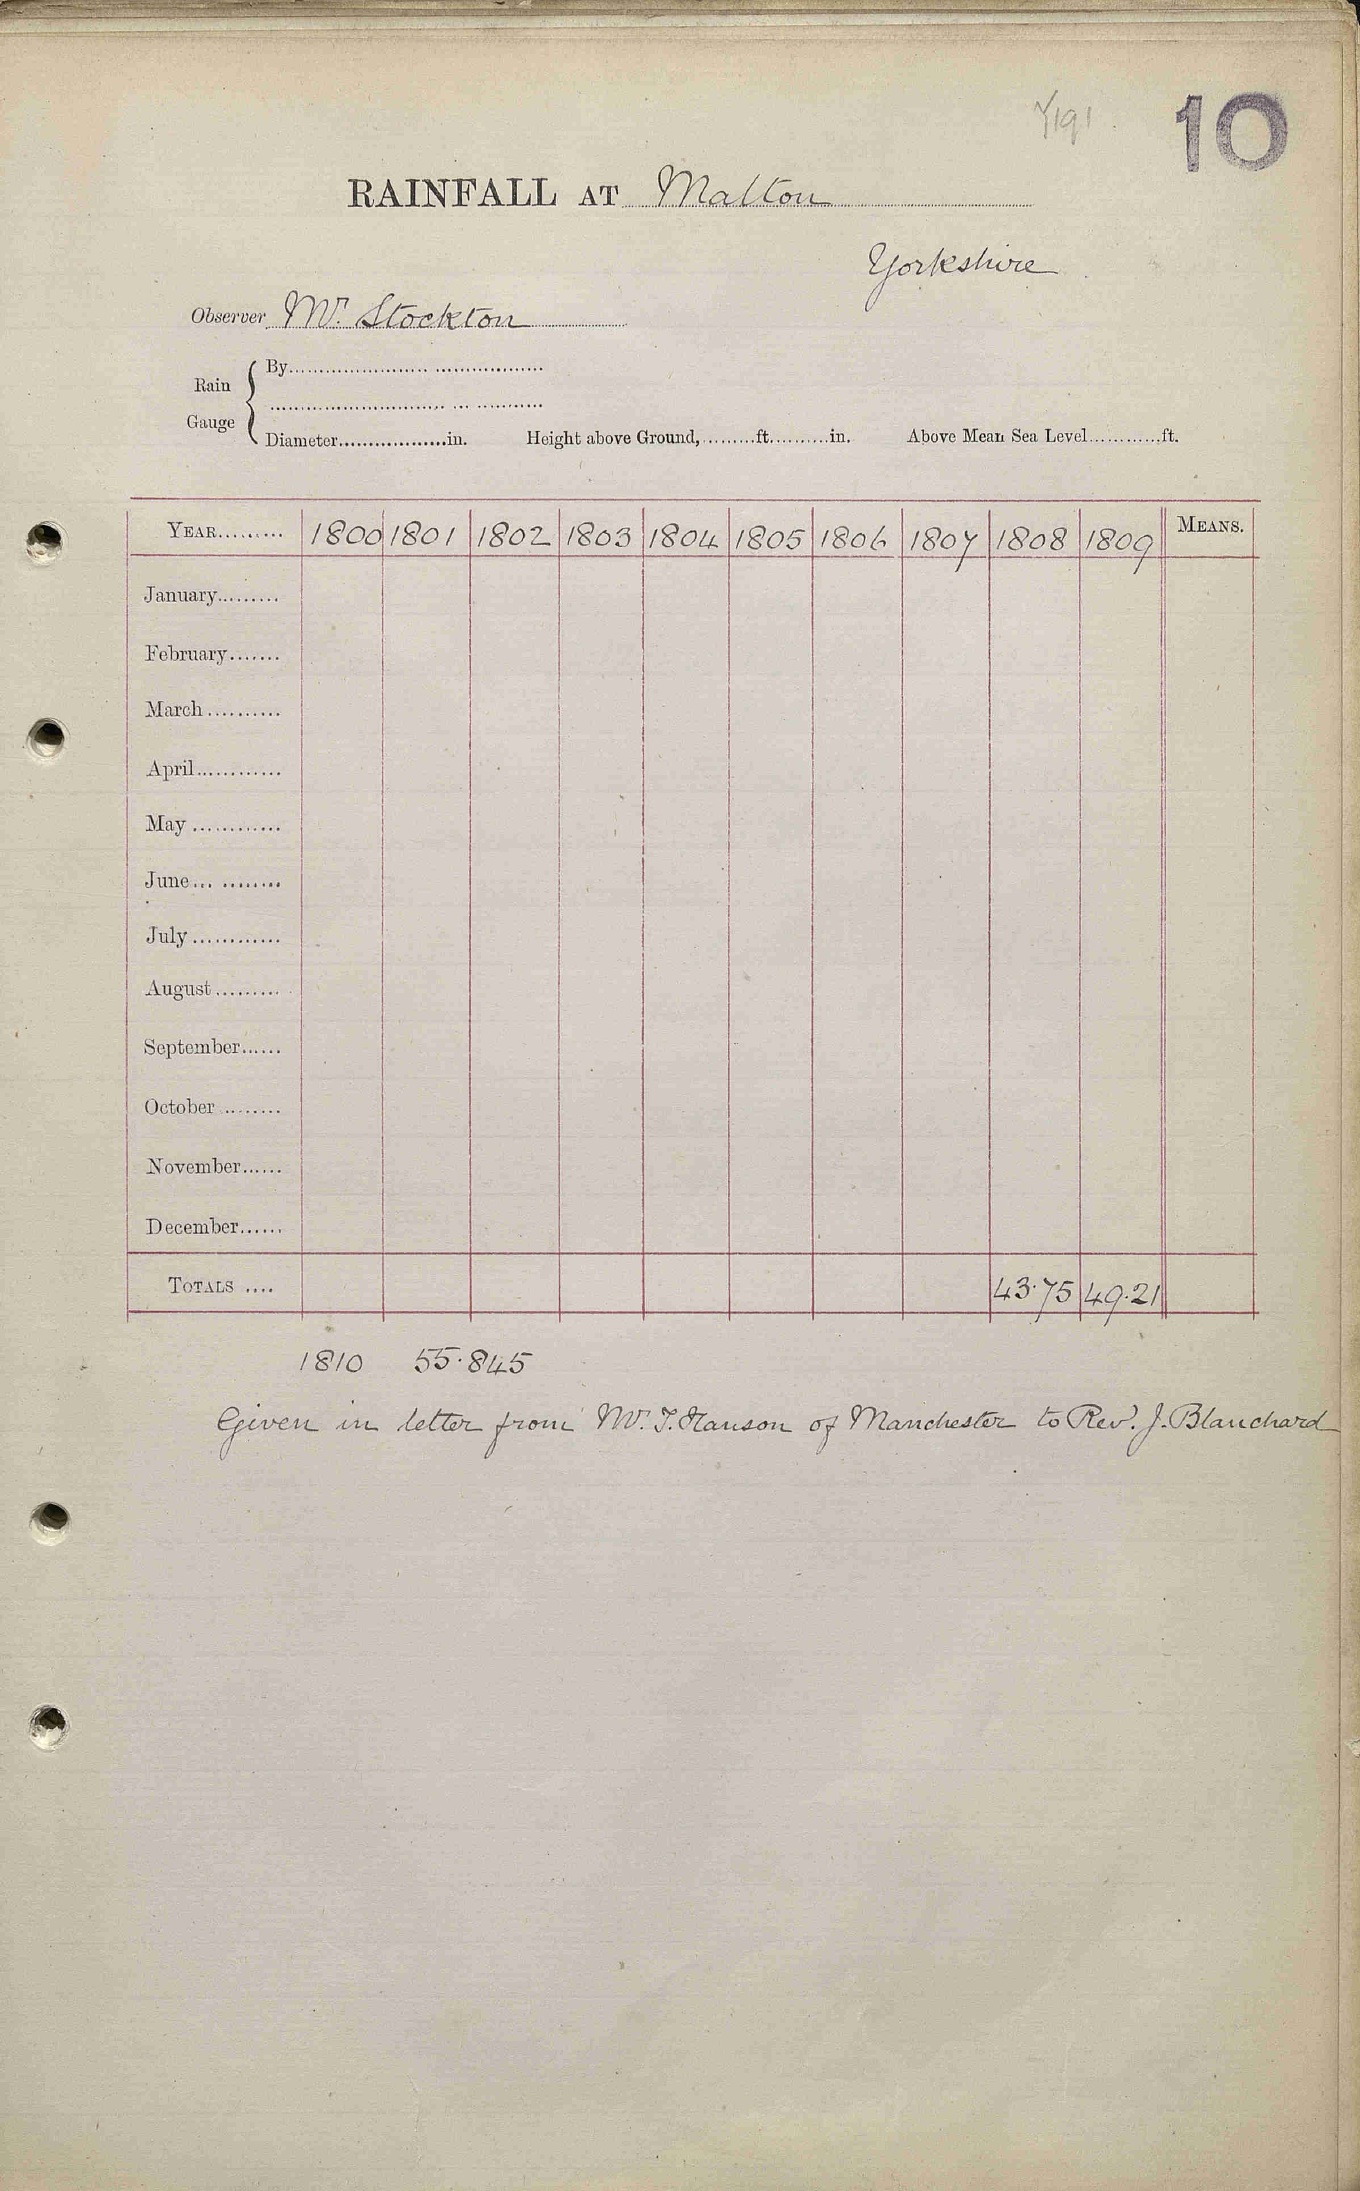 Y191
10
RAINFALL AT Malton
Yorkshire
Observer Mr. Stockton
Rain Gauge
By
Diameter..................in. Height above Ground,.........ft..........in. Above Mean Sea Level............ft.
YEAR......... 1800 1801 1802 1803 1804 1805 1806 1807 1808 1809 MEANS.
January.........
February.......
March..........
April............
May............
June...........
July............
August.........
September......
October.........
November......
December......
TOTALS .... 43.75 49.21
1810 55.845
Given in letter from Mr. T. Hanson of Manchester to Revd. J. Blanchard